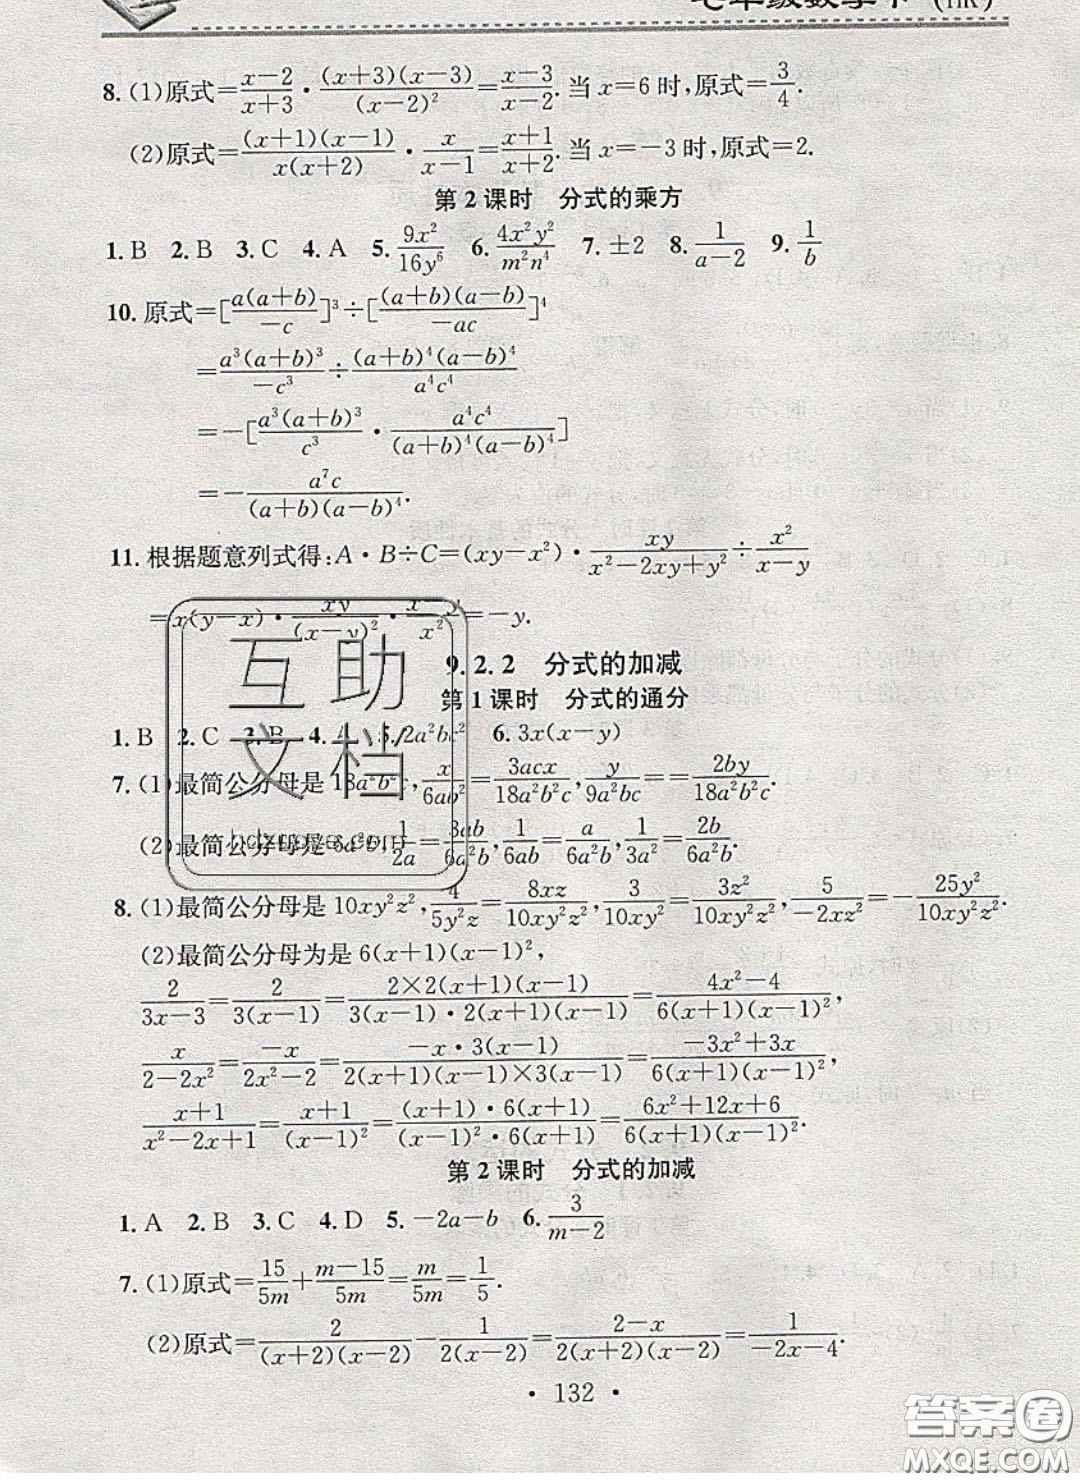 七年级数学下 (HK)
8. (1)原式=\frac{x-2}{x+3}·\frac{(x+3)(x-3)}{(x-2)^2}=\frac{x-3}{x-2}.当 x=6 时,原式=\frac{3}{4}.
(2)原式=\frac{(x+1)(x-1)}{x(x+2)}·\frac{x}{x-1}=\frac{x+1}{x+2}.当 x=-3 时,原式=2.
第 2 课时 分式的乘方
1. B 2. B 3. C 4. A 5. \frac{9x^2}{16y^6} 6. \frac{4x^2y^2}{m^2n^4} 7. ±2 8. \frac{1}{a-2} 9. \frac{1}{b}
10. 原式=[\frac{a(a+b)}{-c}]^3÷[\frac{(a+b)(a-b)}{-ac}]^4
=\frac{a^3(a+b)^3}{-c^3}÷\frac{(a+b)^4(a-b)^4}{a^4c^4}
=-[\frac{a^3(a+b)^3}{c^3}·\frac{a^4c^4}{(a+b)^4(a-b)^4}]
=-\frac{a^7c}{(a+b)(a-b)^4}.
11. 根据题意列式得:A·B÷C=(xy-x^2)·\frac{xy}{x^2-2xy+y^2}÷\frac{x^2}{x-y}
=x(y-x)·\frac{xy}{(x-y)^2}·\frac{x-y}{x^2}=-y.
9. 2. 2 分式的加减
第 1 课时 分式的通分
1. B 2. C 3. B 4. A 5. 2a^2bc^2 6. 3x(x-y)
7. (1)最简公分母是 18a^2b^2c,\frac{x}{6ab^2}=\frac{3acx}{18a^2b^2c},\frac{y}{9a^2bc}==\frac{2by}{18a^2b^2c}.
(2)最简公分母是 6a^2b,\frac{1}{2a}=\frac{3ab}{6a^2b},\frac{1}{6ab}=\frac{a}{6a^2b},\frac{1}{3a^2}=\frac{2b}{6a^2b}.
8. (1)最简公分母是 10xy^2z^2,\frac{4}{5y^2z}=\frac{8xz}{10xy^2z^2},\frac{3}{10xy^2}=\frac{3z^2}{10xy^2z^2},\frac{5}{-2xz^2}=-\frac{25y^2}{10xy^2z^2}.
(2)最简公分母为是 6(x+1)(x-1)^2,
\frac{2}{3x-3}=\frac{2}{3(x-1)}=\frac{2×2(x+1)(x-1)}{3(x-1)·2(x+1)(x-1)}=\frac{4x^2-4}{6(x+1)(x-1)^2},
\frac{x}{2-2x^2}=\frac{-x}{2x^2-2}=\frac{-x·3(x-1)}{2(x+1)(x-1)×3(x-1)}=\frac{-3x^2+3x}{6(x+1)(x-1)^2},
\frac{x+1}{x^2-2x+1}=\frac{x+1}{(x-1)^2}=\frac{(x+1)·6(x+1)}{(x-1)^2·6(x+1)}=\frac{6x^2+12x+6}{6(x+1)(x-1)^2}.
第 2 课时 分式的加减
1. A 2. B 3. C 4. D 5. -2a-b 6. \frac{3}{m-2}
7. (1)原式=\frac{15}{5m}+\frac{m-15}{5m}=\frac{m}{5m}=\frac{1}{5}.
(2)原式=\frac{2}{(x+2)(x-2)}-\frac{1}{2(x-2)}=\frac{2-x}{2(x+2)(x-2)}=\frac{1}{-2x-4}.
· 132 ·
互助
文档
答案圈
MXQE.COM